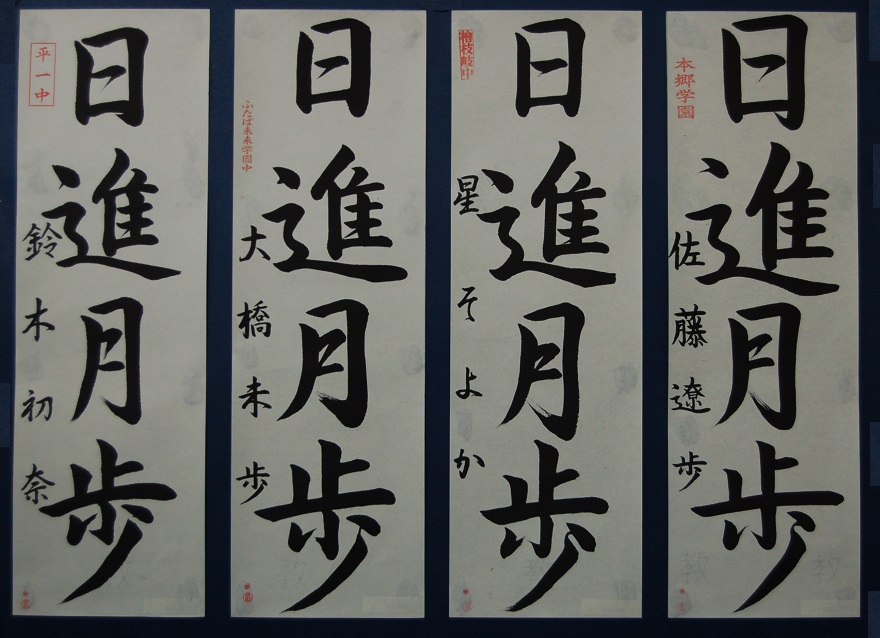 日進月歩
平一中
鈴木初奈
日進月歩
ふたば未来学園中
大橋未歩
日進月歩
檜枝岐中
星そよか
日進月歩
本郷学園
佐藤遼歩